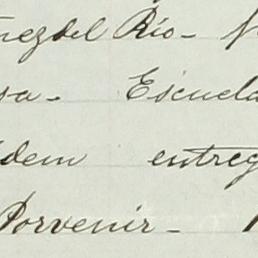 nez del Rio - f
sa - Escuela
dem entreg
Porvenir -